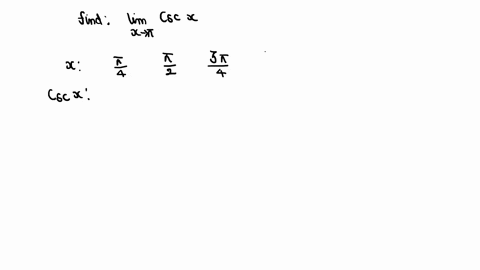 find: lim x→π Csc x
x: π/4 π/2 3π/4
Csc x: